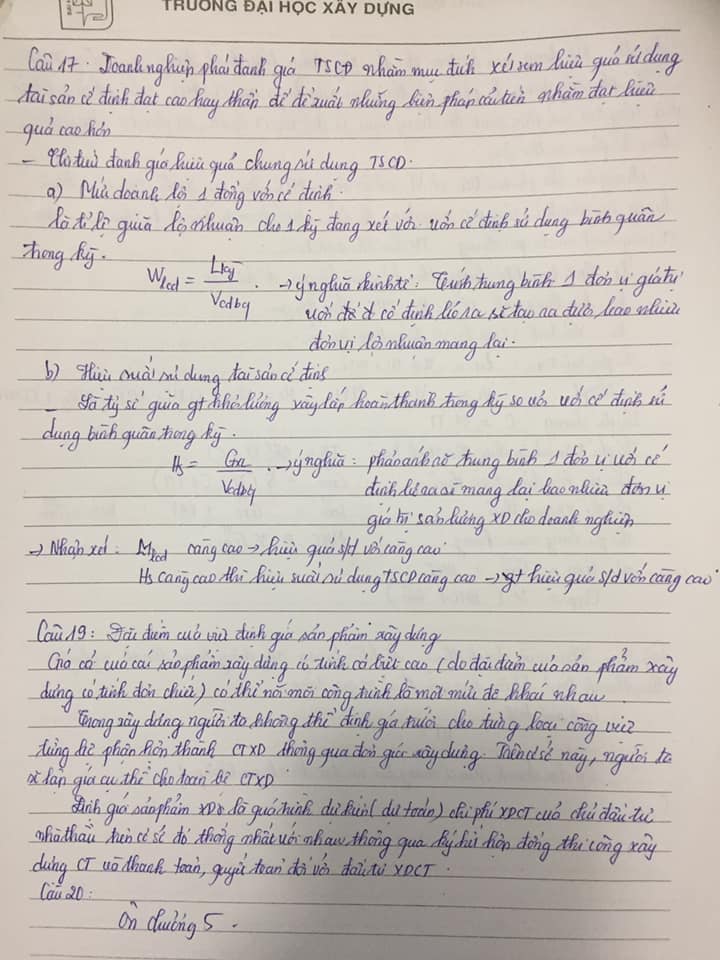 TRƯỜNG ĐẠI HỌC XÂY DỰNG
Câu 17. Doanh nghiệp phải đánh giá TSCĐ nhằm mục đích xét xem hiệu quả sử dụng
tài sản cố định đạt cao hay thấp để đề xuất những biện pháp cải tiến nhằm đạt hiệu
quả cao hơn
- Chỉ tiêu đánh giá hiệu quả chung sử dụng TSCĐ.
a) Mức doanh lợi 1 đồng vốn cố định.
là tỉ lệ giữa lợi nhuận cho 1 kỳ đang xét với vốn cố định sử dụng bình quân
trong kỳ.
Wlcd = Lkỳ / Vcđbq. → ý nghĩa kinh tế: Tính trung bình 1 đơn vị giá trị
vốn cố định bỏ ra sẽ tạo ra được bao nhiêu
đơn vị lợi nhuận mang lại.
b) Hiệu suất sử dụng tài sản cố định
- Là tỷ số giữa gt khối lượng xây lắp hoàn thành trong kỳ so với vốn cố định sử
dụng bình quân trong kỳ.
Hs = / Vcđbq. → ý nghĩa: phản ánh cứ trung bình 1 đơn vị vốn cố
định bỏ ra sẽ mang lại bao nhiêu đơn vị
giá trị sản lượng XD cho doanh nghiệp
→ Nhận xét: Mlcd càng cao → hiệu quả s/d vốn càng cao
Hs càng cao thì hiệu suất sử dụng TSCĐ càng cao → gt hiệu quả s/d vốn càng cao
Câu 19: Đặc điểm của việc định giá sản phẩm xây dựng
Giá cả của các sản phẩm xây dựng có tính cá biệt cao (do đặc điểm của sản phẩm xây
dựng có tính đơn chiếc) có thể nói mỗi công trình là một mức độ khác nhau
Trong xây dựng người ta không thể định giá trước cho từng loại công việc
từng bộ phận hợp thành CTXD thông qua đơn giá xây dựng. Trên cơ sở này, người ta
sẽ lập giá cụ thể cho toàn bộ CTXD
Định giá sản phẩm XD là quá trình dự kiến (dự toán) chi phí XDCT của chủ đầu tư
nhà thầu trên cơ sở đó thống nhất với nhau thông qua ký kết hợp đồng thi công xây
dựng CT và thanh toán, quyết toán đối với đầu tư XDCT.
Câu 20:
Ôn chương 5.